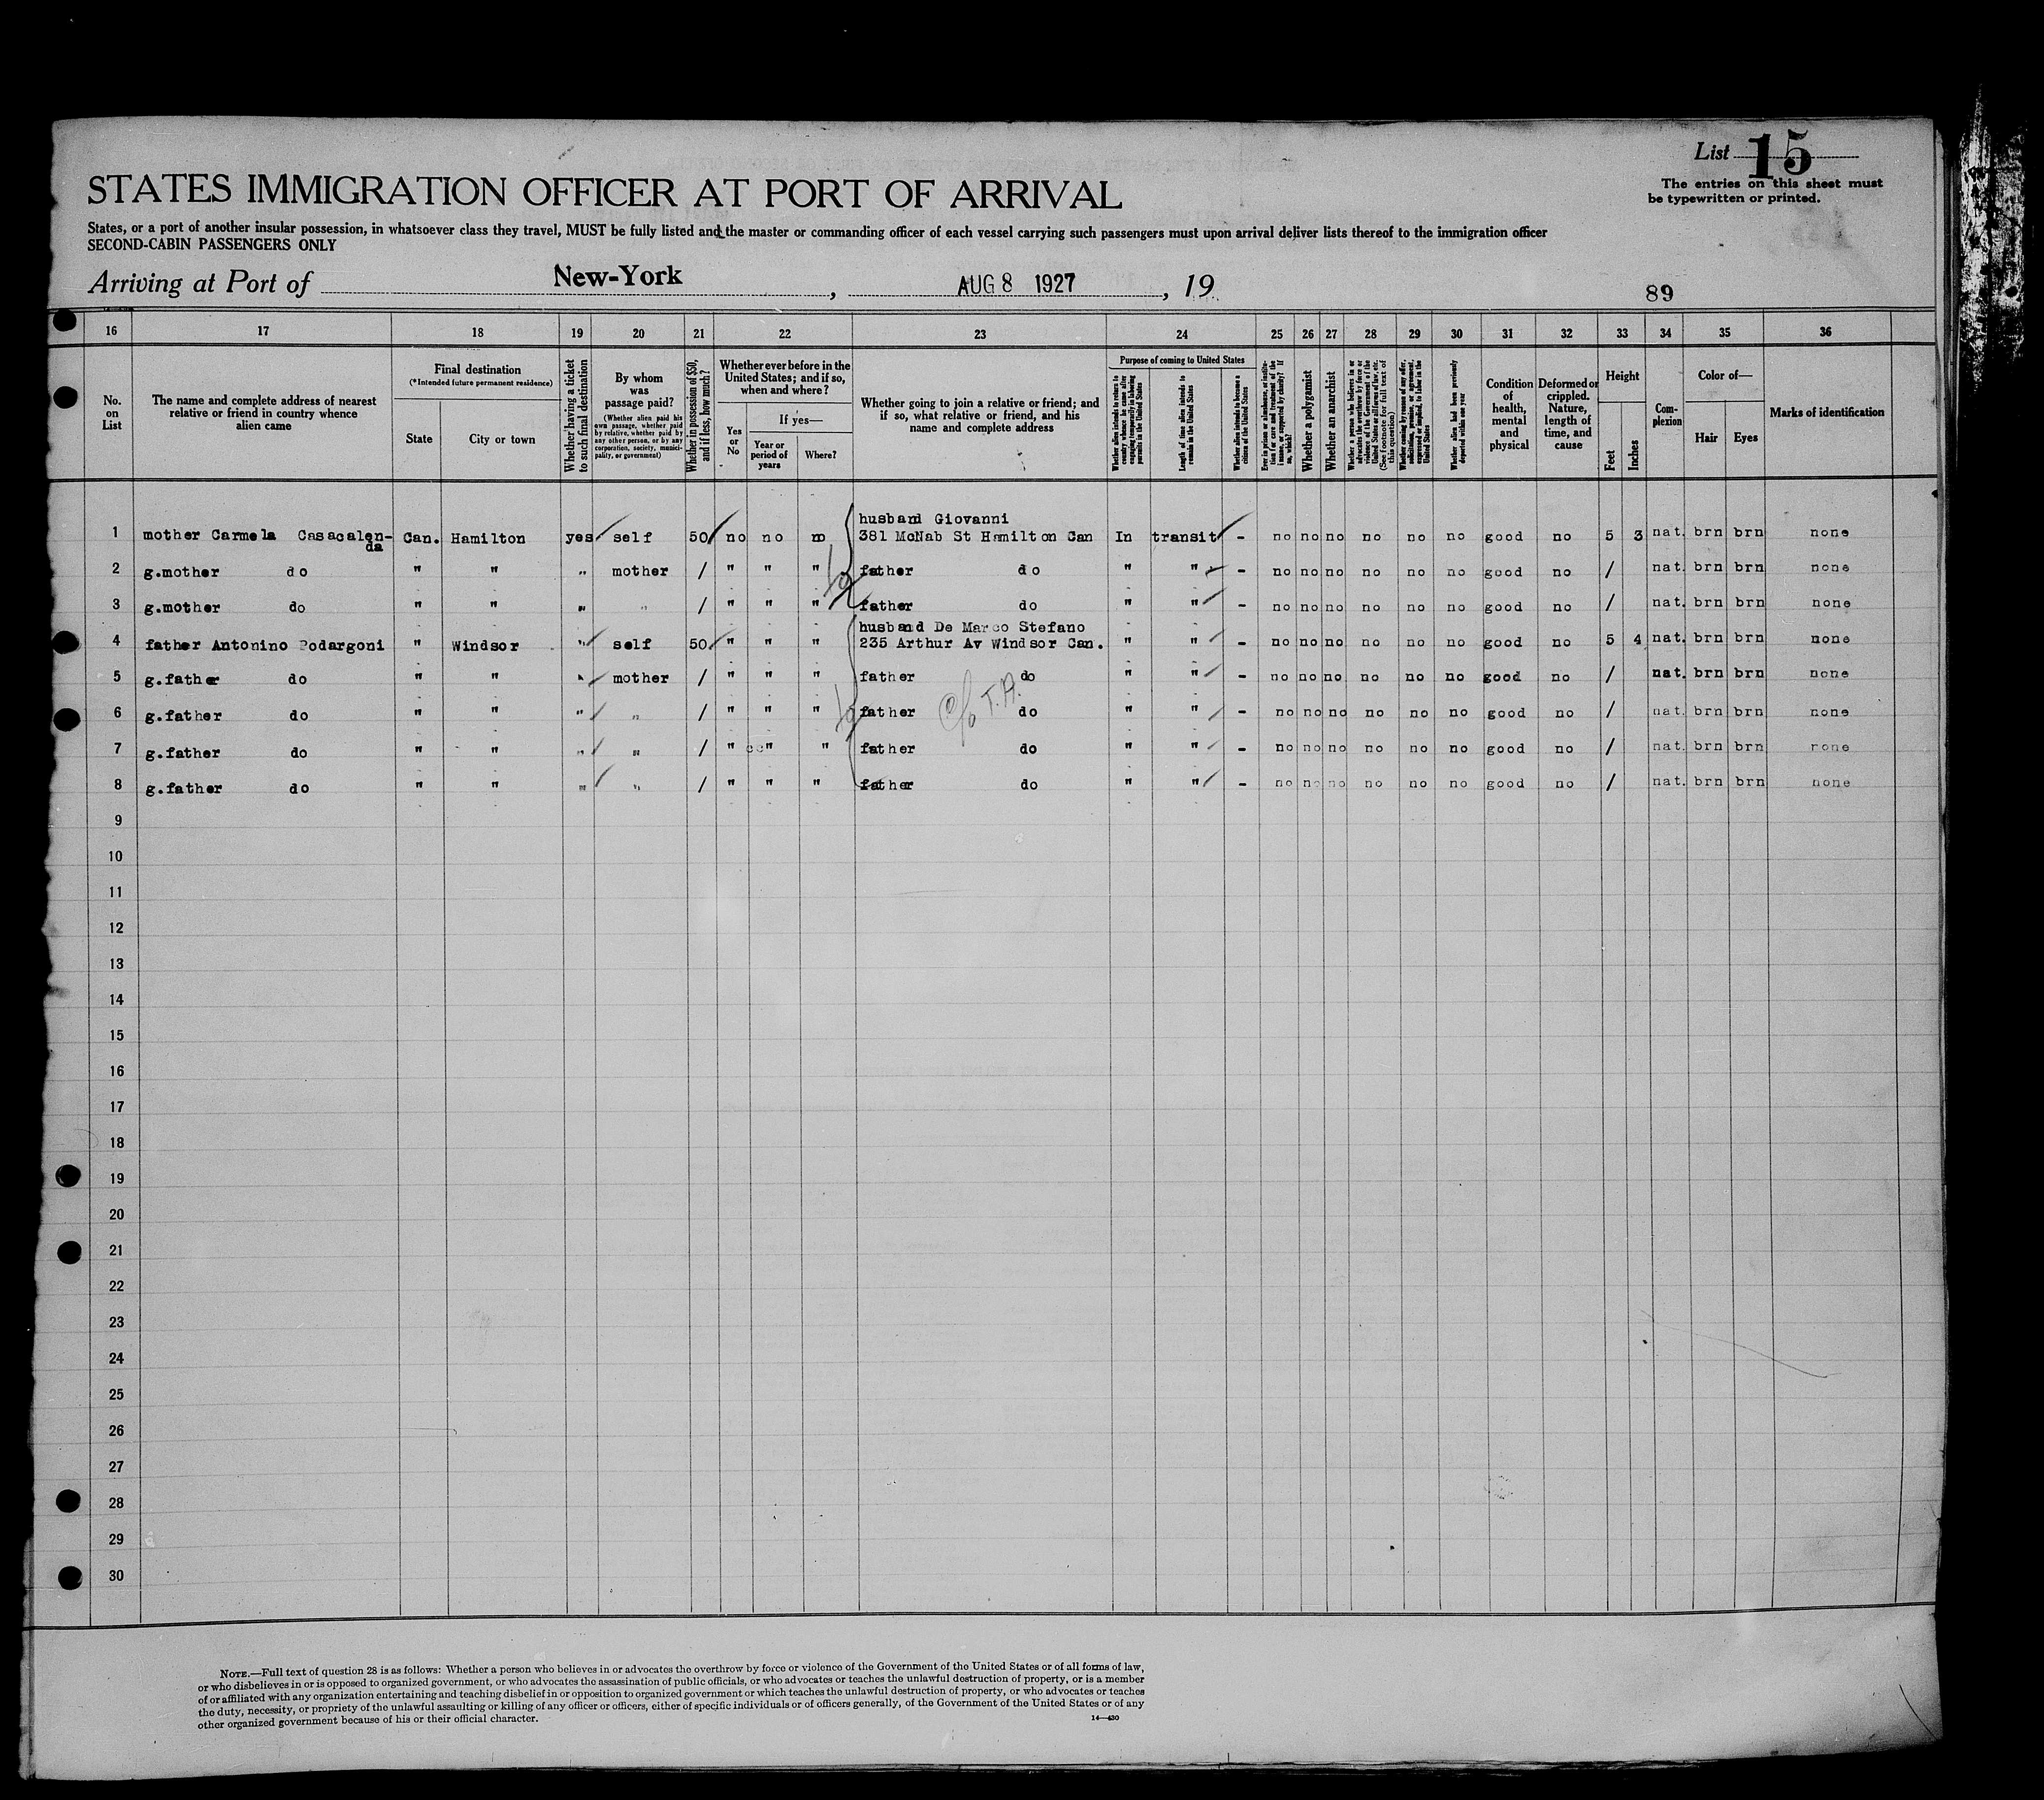 List 15
The entries on this sheet must
be typewritten or printed.
STATES IMMIGRATION OFFICER AT PORT OF ARRIVAL
States, or a port of another insular possession, in whatsoever class they travel, MUST be fully listed and the master or commanding officer of each vessel carrying such passengers must upon arrival deliver lists thereof to the immigration officer
SECOND-CABIN PASSENGERS ONLY
Arriving at Port of New-York, AUG 8 1927, 19
89
16 17 18 19 20 21 22 23 24 25 26 27 28 29 30 31 32 33 34 35 36
No. on List
The name and complete address of nearest relative or friend in country whence alien came
Final destination
(*Intended future permanent residence)
State
City or town
Whether having a ticket to such final destination
By whom was passage paid?
(Whether alien paid his own passage, whether paid by relative, whether paid by any other person, or by any corporation, society, municipality, or government)
Whether in possession of $50, and if less, how much?
Whether ever before in the United States; and if so, when and where?
Yes or No
If yes—
Year or period of years
Where?
Whether going to join a relative or friend; and if so, what relative or friend, and his name and complete address
Purpose of coming to United States
Whether alien intends to return to country whence he came after engaging temporarily in laboring pursuits in the United States
Length of time alien intends to remain in the United States
Whether alien intends to become a citizen of the United States
Ever in prison or almshouse, or institution for care and treatment of the insane, or supported by charity? If so, which?
Whether a polygamist
Whether an anarchist
Whether a person who believes in or advocates the overthrow by force or violence of the Government of the United States or all forms of law, etc. (See footnote for full text of this question)
Whether coming by reason of any offer, solicitation, promise, or agreement, expressed or implied, to labor in the United States
Whether alien had been previously deported within one year
Condition of health, mental and physical
Deformed or crippled. Nature, length of time, and cause
Height
Feet
Inches
Complexion
Color of—
Hair
Eyes
Marks of identification
husband Giovanni
1 mother Carmela Casacalen- Can. Hamilton yes self 50 no no no 381 McNab St Hamilton Can In transit - no no no no no no good no 5 3 nat. brn brn none
da
2 g.mother do " " " mother / " " " father do " " - no no no no no no good no / nat. brn brn none
3 g.mother do " " " " / " " " father do " " - no no no no no no good no / nat. brn brn none
husband De Marco Stefano
4 father Antonino Podargoni " Windsor " self 50 " " " 235 Arthur Av Windsor Can. " " - no no no no no no good no 5 4 nat. brn brn none
5 g.father do " " " mother / " " " father do " " - no no no no no no good no / nat. brn brn none
6 g.father do " " " " / " " " father do " " - no no no no no no good no / nat. brn brn none
7 g.father do " " " " / " " " father do " " - no no no no no no good no / nat. brn brn none
8 g.father do " " " " / " " " father do " " - no no no no no no good no / nat. brn brn none
9
10
11
12
13
14
15
16
17
18
19
20
21
22
23
24
25
26
27
28
29
30
NOTE.—Full text of question 28 is as follows: Whether a person who believes in or advocates the overthrow by force or violence of the Government of the United States or of all forms of law,
or who disbelieves in or is opposed to organized government, or who advocates the assassination of public officials, or who advocates or teaches the unlawful destruction of property, or is a member
of or affiliated with any organization entertaining and teaching disbelief in or opposition to organized government or which teaches the unlawful destruction of property, or who advocates or teaches
the duty, necessity, or propriety of the unlawful assaulting or killing of any officer or officers, either of specific individuals or of officers generally, of the Government of the United States or of any
other organized government because of his or their official character.
14—430